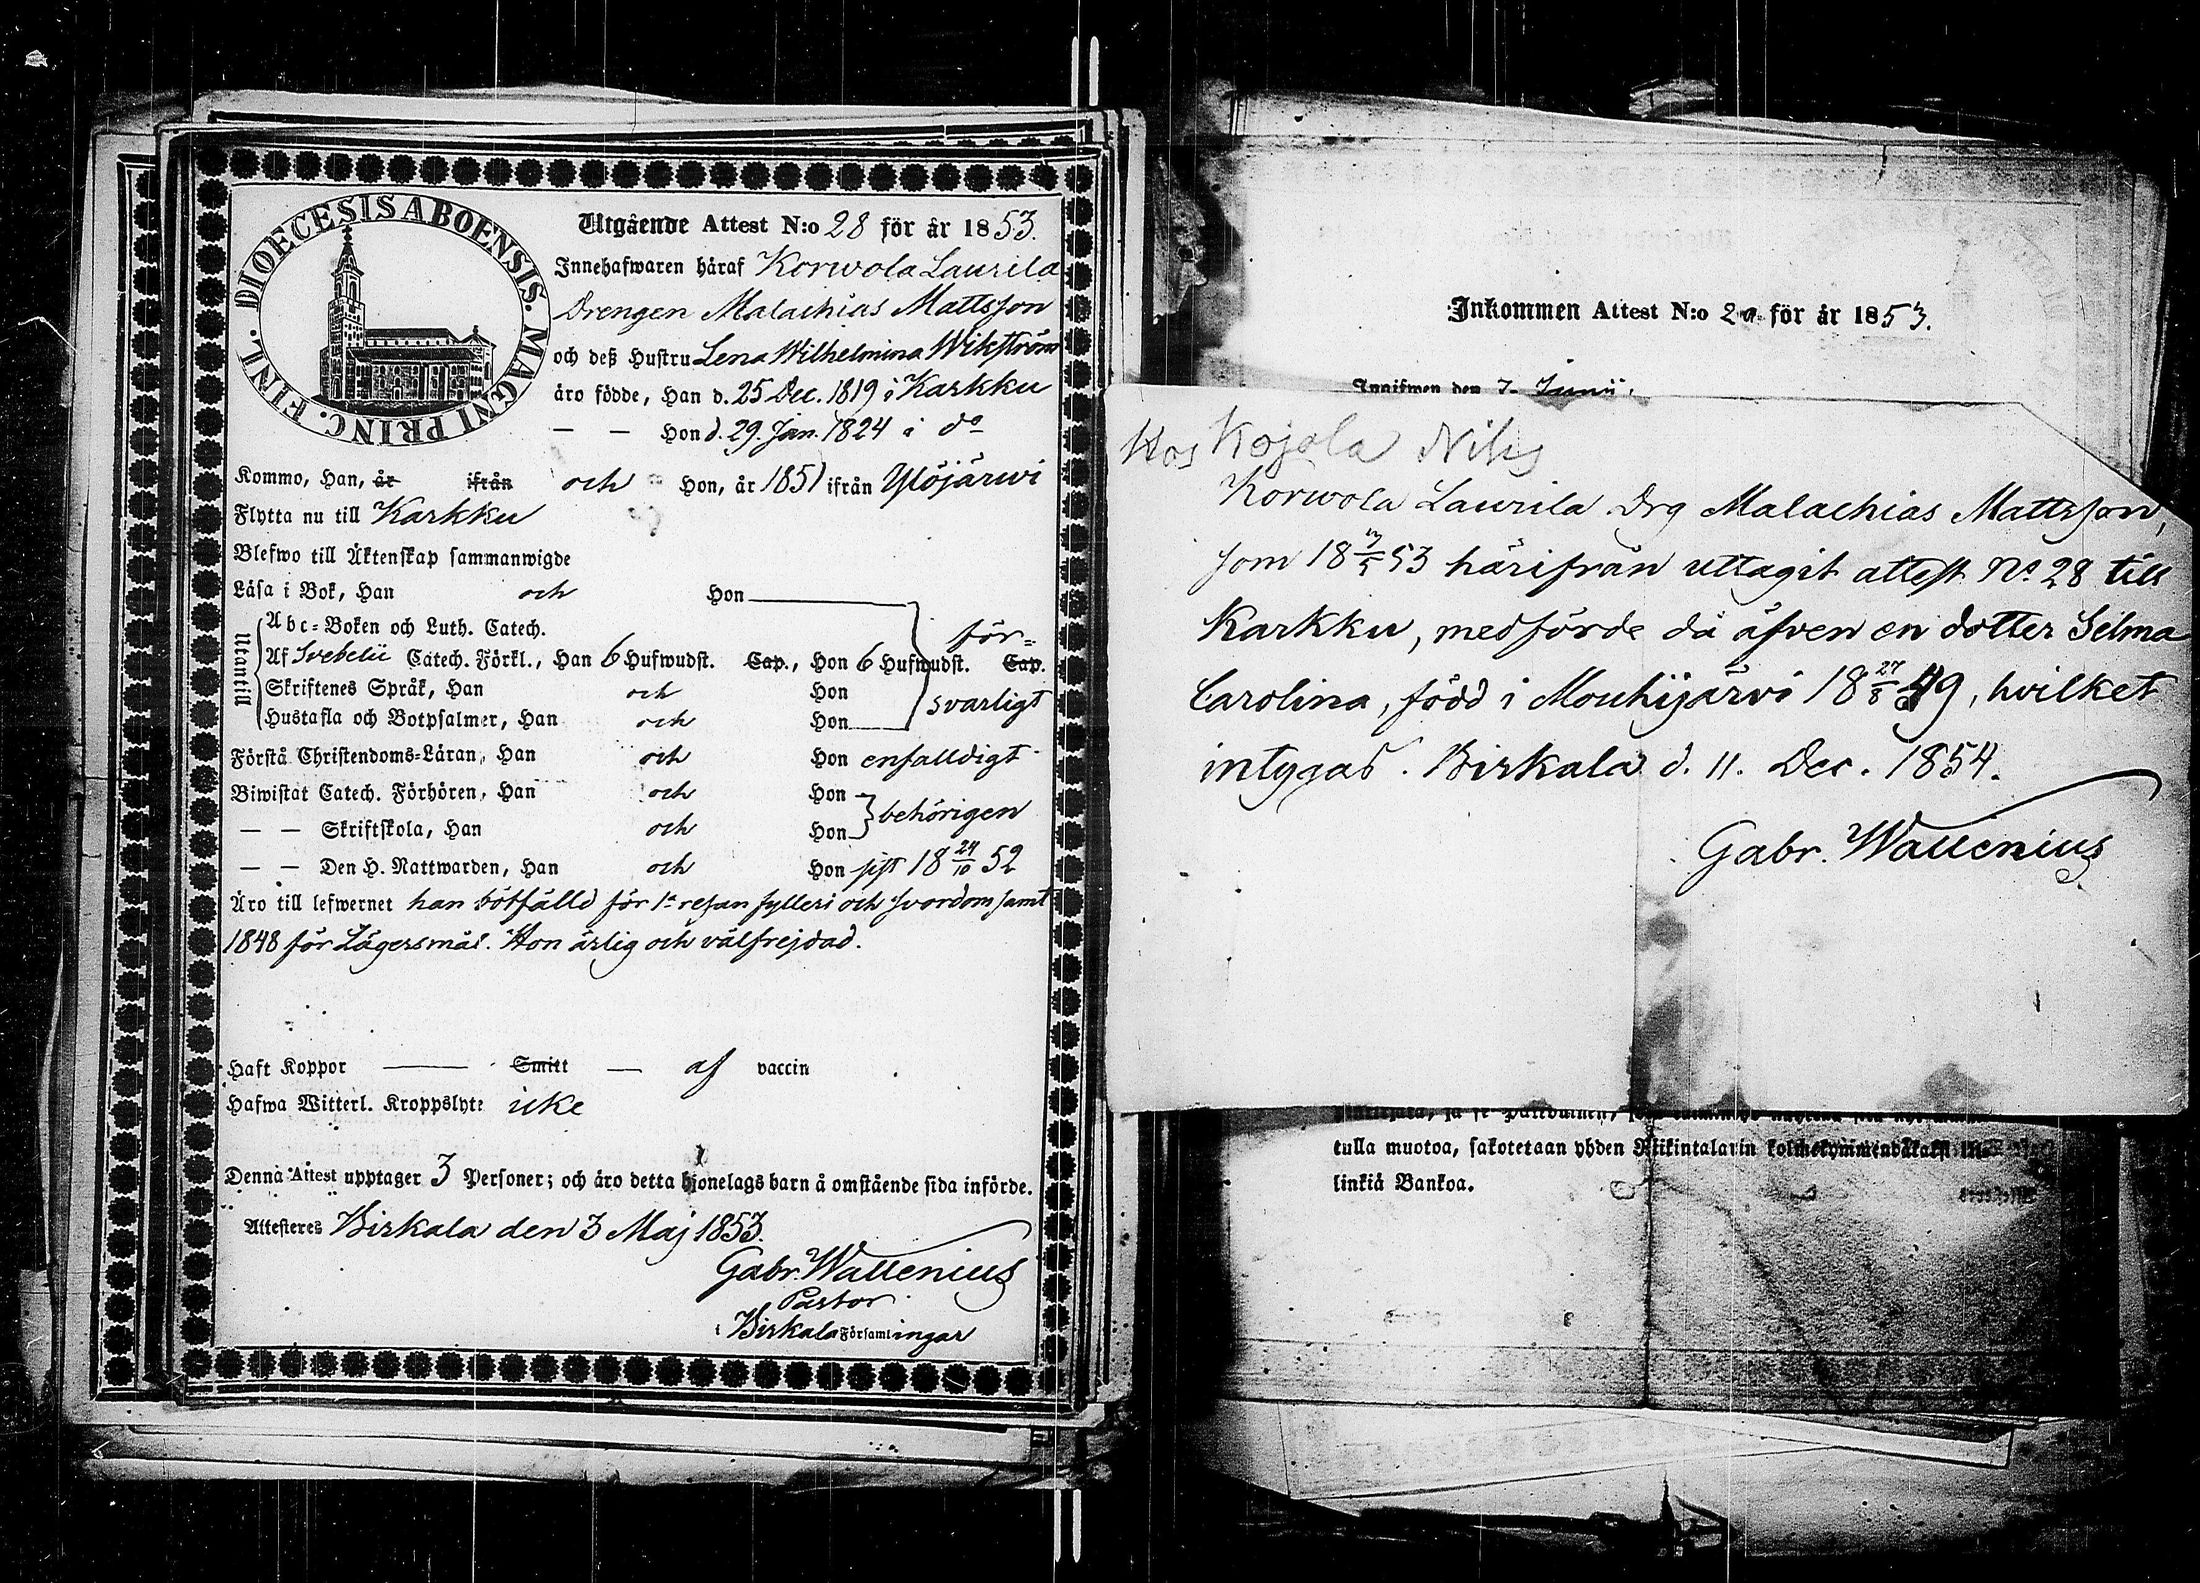 DIOECESIS ABOENSIS. MAGNI PRINC. FINL.
Utgående Attest N:o 28 för år 1853.
Innehafwaren häraf Korwola Laurila
Drengen Malachias Mattsson
och deß Hustru Lena Wilhelmina Wikström
äro födde, Han d. 25 Dec. 1819 i Karkku
— — Hon d. 29. Jan. 1824 i do
Kommo, Han, år ifrån och Hon, år 1851 ifrån Ylöjärwi
Flytta nu till Karkku
Blefwo till Äktenskap sammanwigde
Läsa i Bok, Han och Hon
Utantill
Abc-Boken och Luth. Catech.
Af Svebelii Catech. Förkl., Han 6 Hufwudst. Cap., Hon 6 Hufwudst. Cap.
Skriftenes Språk, Han och Hon
Hustafla och Botpsalmer, Han och Hon
för-
svarligt
Förstå Christendoms-Läran, Han och Hon enfalldigt
Biwistat Catech. Förhören, Han och Hon
— — Skriftskola, Han och Hon
behörigen
— — Den H. Nattwarden, Han och Hon sist 18 24/10 52
Äro till lefwernet han bötfälld för 1a resan fylleri och svordom samt
1848 för Lägersmål. Hon ärlig och välfrejdad.
Haft Koppor —— Smitt — af vaccin
Hafwa Witterl. Kroppslyte icke
Denna Attest upptager 3 Personer; och äro detta hjonelags barn å omstående sida införde.
Attesteres Birkala den 3 Maj 1853.
Gabr. Wallenius
Pastor
i Birkala Församlingar
Inkommen Attest N:o för år 1853.
den 7 Junii.
Hos Kojola Nils
Korwola Laurila Drg Malachias Mattsson,
som 18 53 härifrån uttagit attest No 28 till
Karkku, medförde då äfven en dotter Selma
Carolina, född i Mouhijärvi 18 27/8 49, hvilket
intygas. Birkala d. 11. Dec. 1854.
Gabr. Wallenius
tulla muotoa, sakotetaan yhden Riikintalarin
linkiä Bankoa.